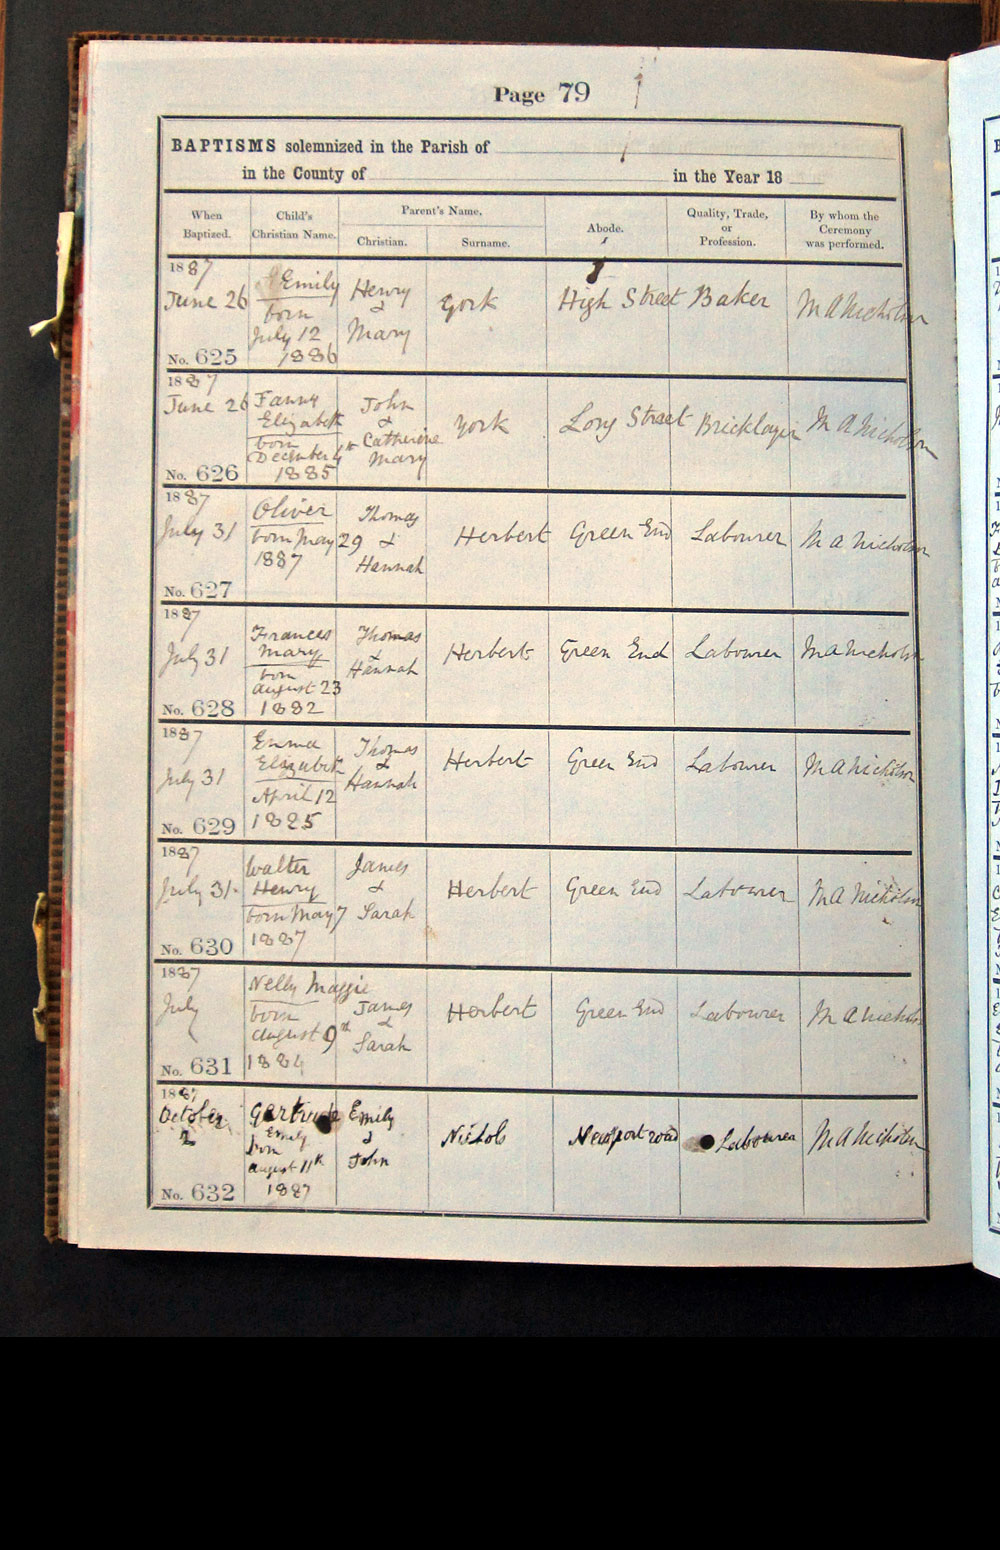 Page 79
BAPTISMS solemnized in the Parish of
in the County of in the Year 18
When Baptized. Child's Christian Name. Parent's Name. Christian. Surname. Abode. Quality, Trade, or Profession. By whom the Ceremony was performed.
1887
June 26 Emily Henry & Mary York High Street Baker M A Nicholson
born
July 12
1886
No. 625
1887
June 26 Fanny John York Long Street Bricklayer M A Nicholson
Elizabeth &
born Catherine
December 6th Mary
1885
No. 626
1887
July 31 Oliver Thomas Herbert Green End Labourer M A Nicholson
born May 29 &
1887 Hannah
No. 627
1887
July 31 Frances Thomas Herbert Green End Labourer M A Nicholson
Mary &
born Hannah
August 23
1882
No. 628
1887
July 31 Emma Thomas Herbert Green End Labourer M A Nicholson
Elizabeth &
April 12 Hannah
1885
No. 629
1887
July 31 Walter James Herbert Green End Labourer M A Nicholson
Henry &
born May 7 Sarah
1887
No. 630
1887
July Nelly Maggie James Herbert Green End Labourer M A Nicholson
born &
August 9th Sarah
1884
No. 631
1887
October 2 Gertrude Emily Nichols Newport road Labourer M A Nicholson
Emily &
born John
August 11th
1887
No. 632